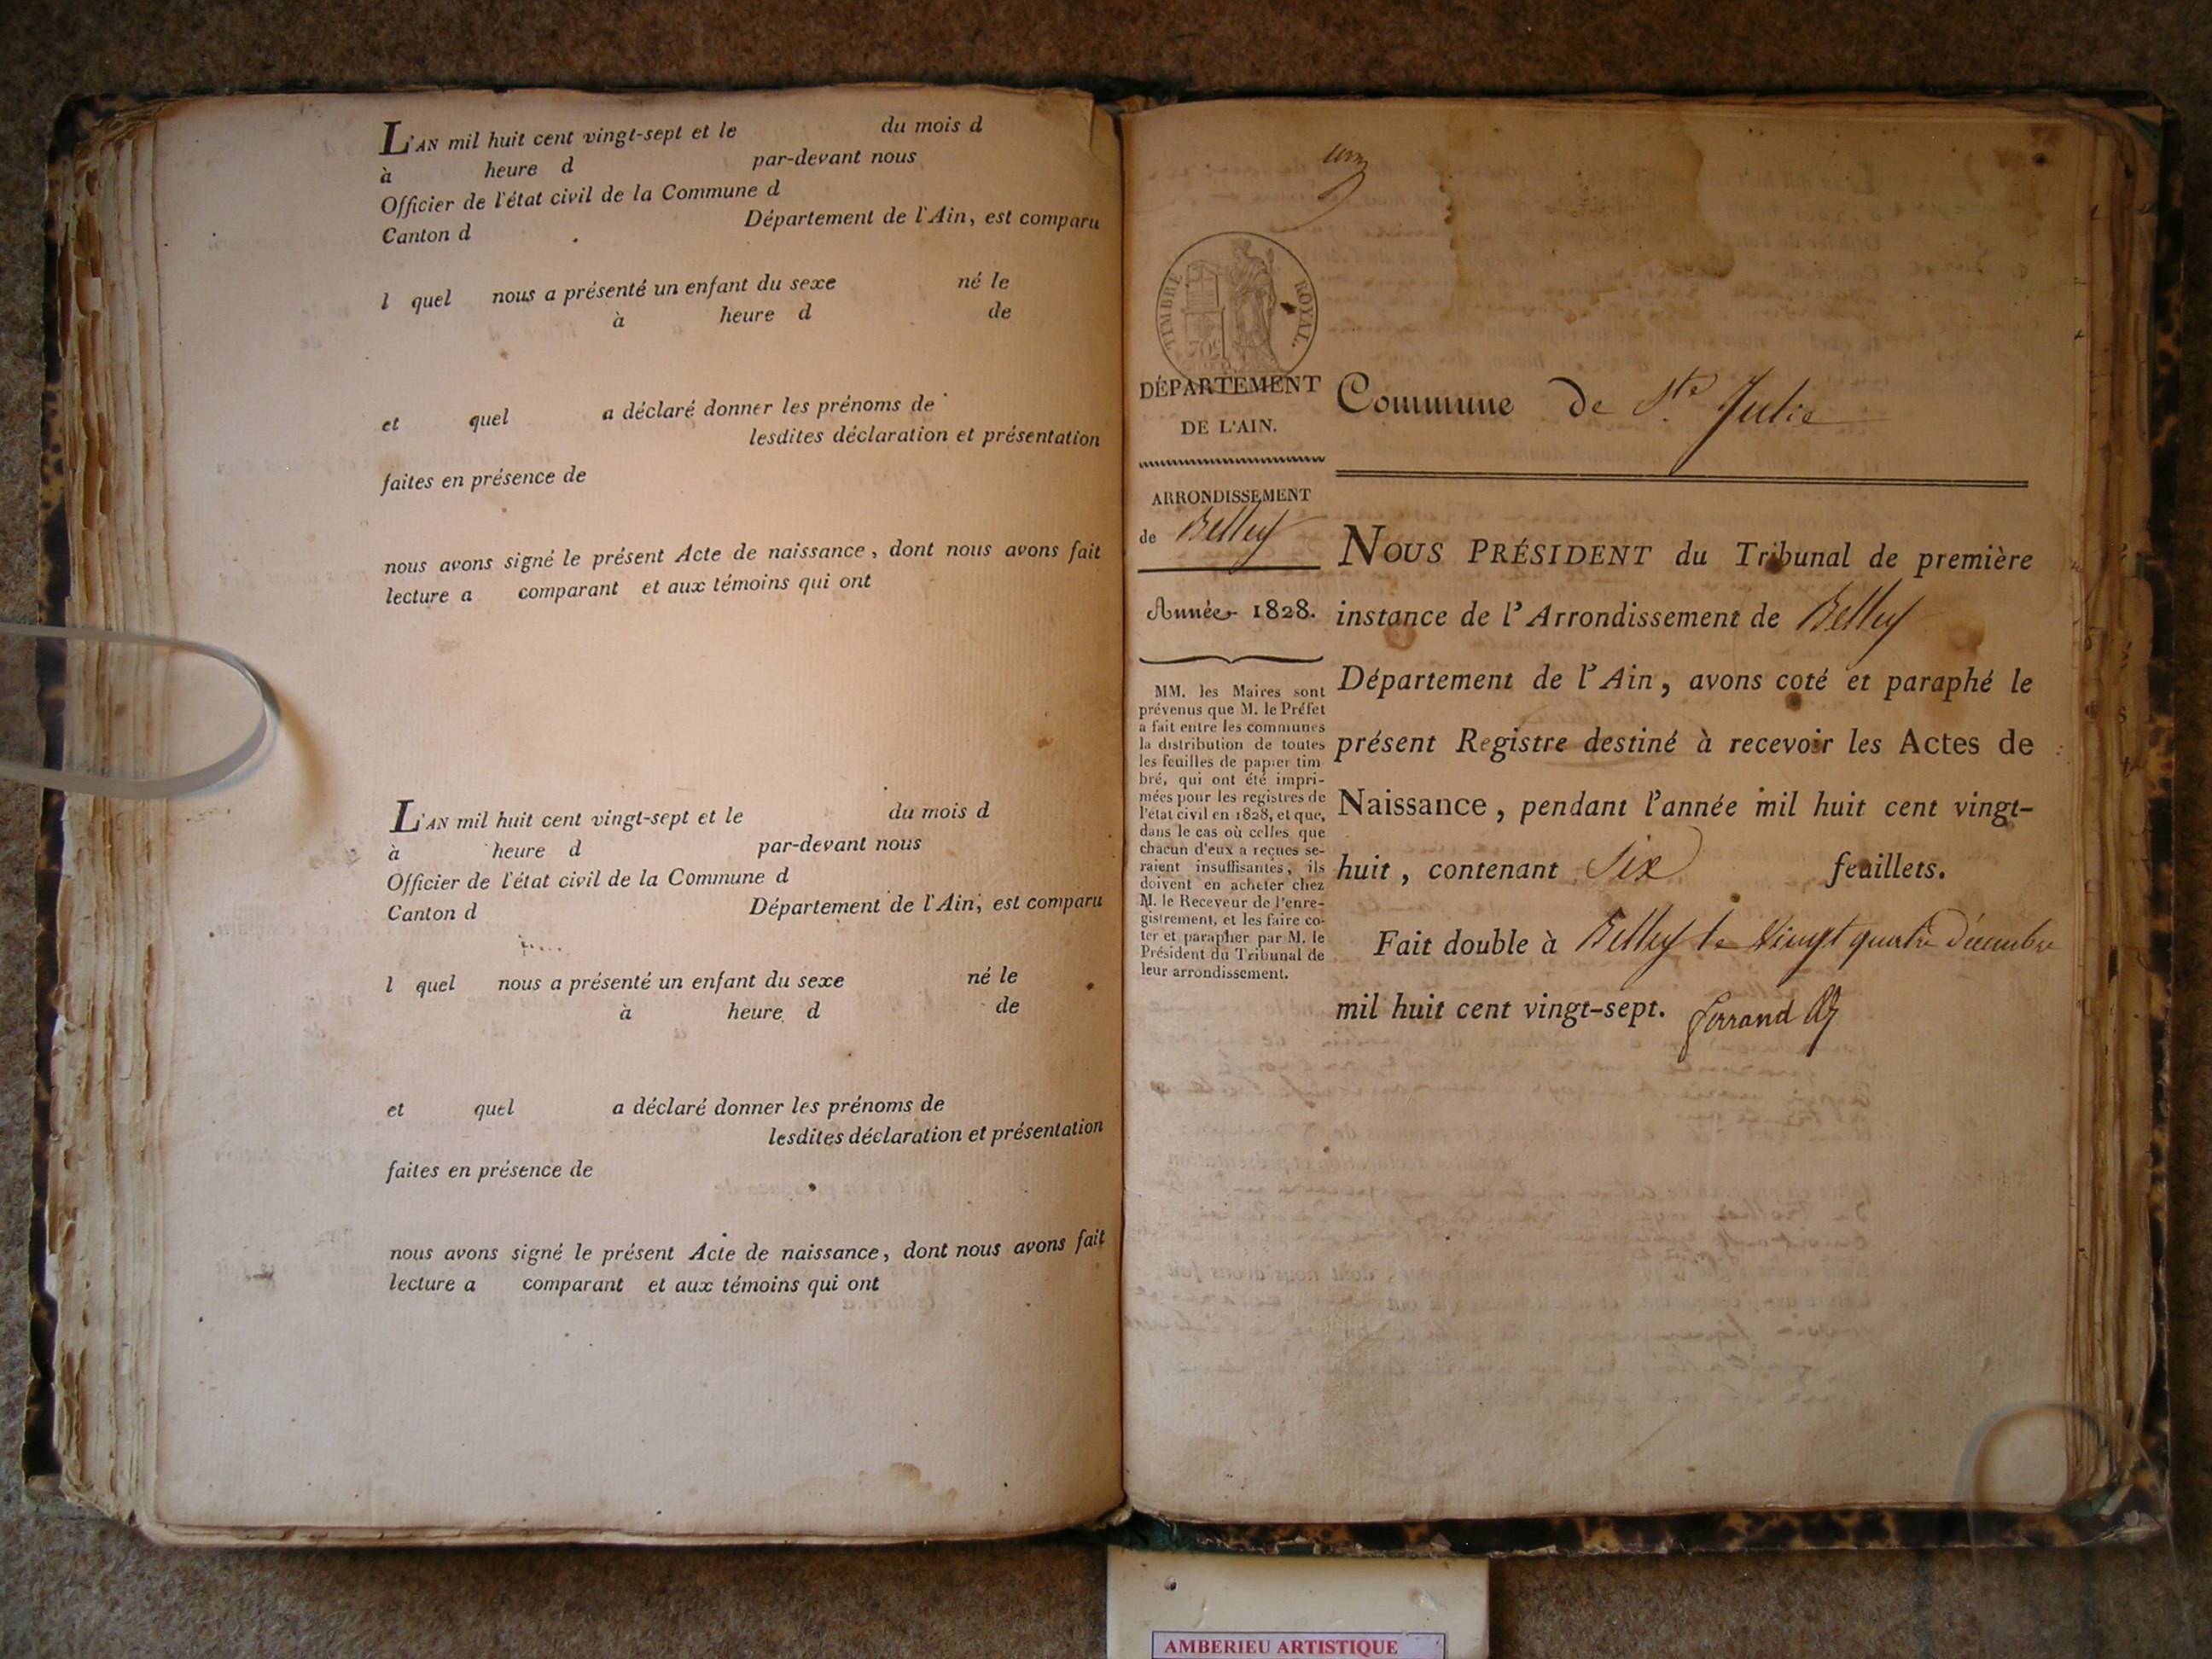 L'AN mil huit cent vingt-sept et le du mois d
à heure d par-devant nous
Officier de l'état civil de la Commune d
Canton d Département de l'Ain, est comparu
l quel nous a présenté un enfant du sexe né le
à heure d de
et quel a déclaré donner les prénoms de
lesdites déclaration et présentation
faites en présence de
nous avons signé le présent Acte de naissance, dont nous avons fait
lecture a comparant et aux témoins qui ont
L'AN mil huit cent vingt-sept et le du mois d
à heure d par-devant nous
Officier de l'état civil de la Commune d
Canton d Département de l'Ain, est comparu
l quel nous a présenté un enfant du sexe né le
à heure d de
et quel a déclaré donner les prénoms de
lesdites déclaration et présentation
faites en présence de
nous avons signé le présent Acte de naissance, dont nous avons fait
lecture a comparant et aux témoins qui ont
TIMBRE ROYAL.
DÉPARTEMENT
DE L'AIN.
ARRONDISSEMENT
de Belley
Année 1828.
MM. les Maires sont
prévenus que M. le Préfet
a fait entre les communes
la distribution de toutes
les feuilles de papier tim-
bré, qui ont été impri-
mées pour les registres de
l'état civil en 1828, et que,
dans le cas où celles que
chacun d'eux a reçues se-
raient insuffisantes, ils
doivent en acheter chez
M. le Receveur de l'enre-
gistrement, et les faire co-
ter et parapher par M. le
Président du Tribunal de
leur arrondissement.
Commune de Ste. Julie
NOUS PRÉSIDENT du Tribunal de première
instance de l'Arrondissement de Belley
Département de l'Ain, avons coté et paraphé le
présent Registre destiné à recevoir les Actes de
Naissance, pendant l'année mil huit cent vingt-
huit, contenant Six feuillets.
Fait double à Belley le vingt quatre décembre
mil huit cent vingt-sept. ferrand
AMBERIEU ARTISTIQUE